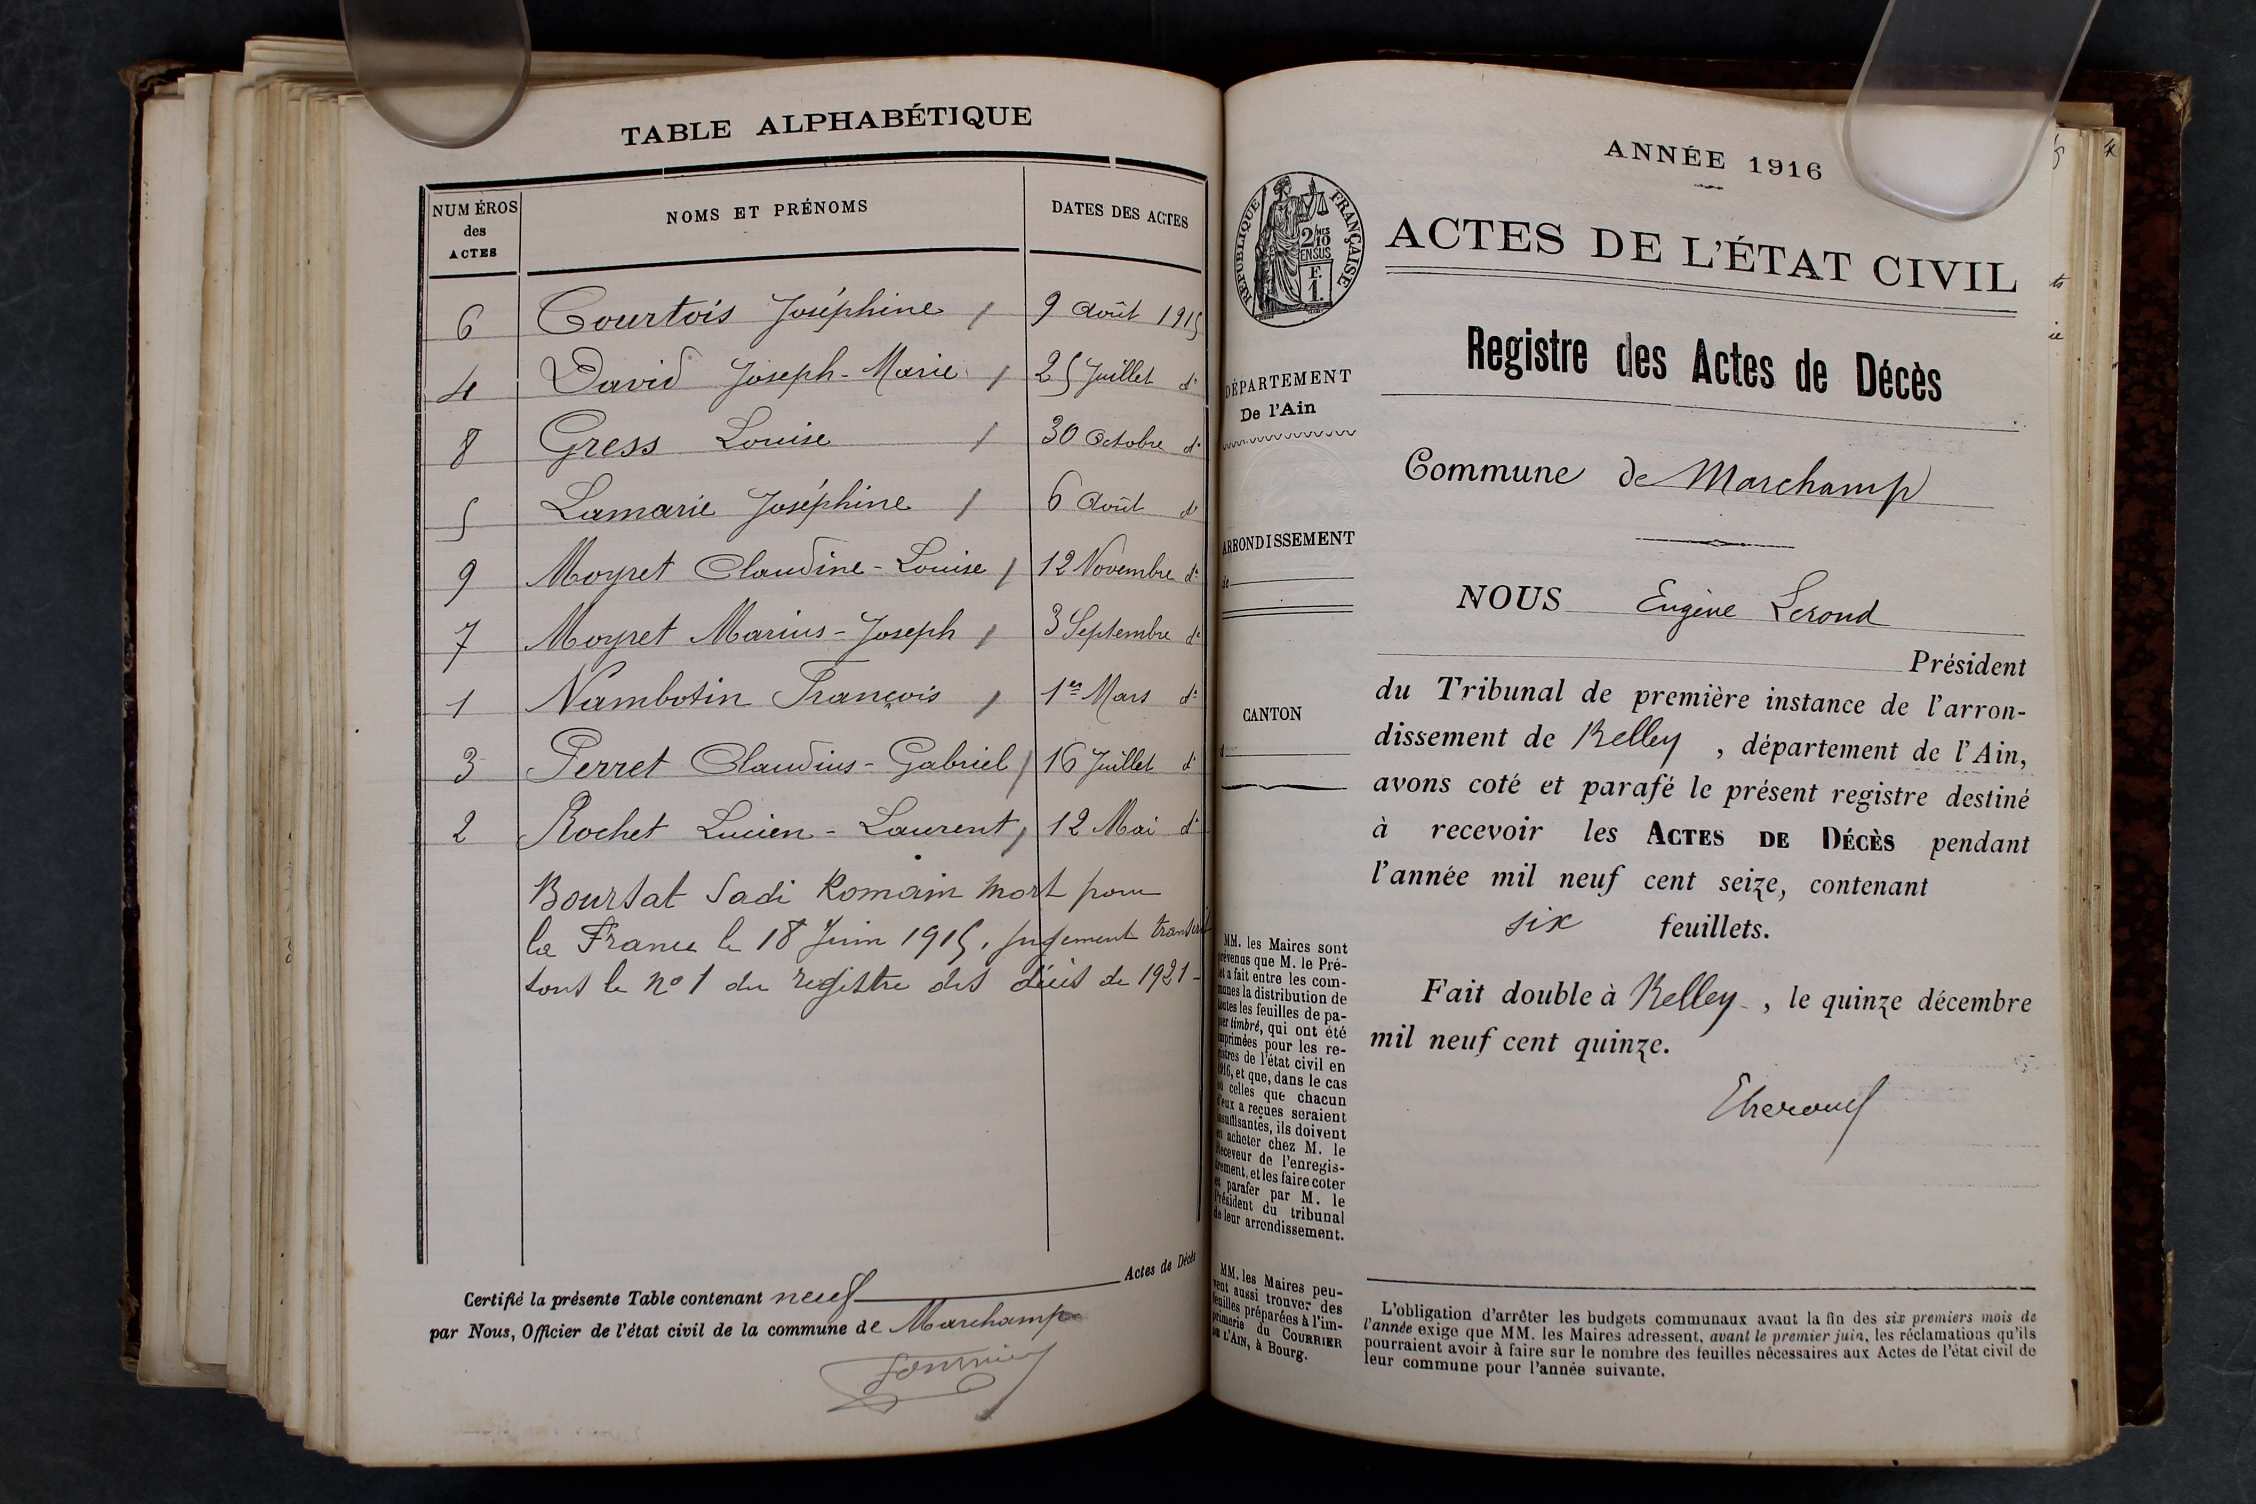 TABLE ALPHABÉTIQUE
NUMÉROS des ACTES NOMS ET PRÉNOMS DATES DES ACTES
6 Courtois Joséphine 9 Août 1915
4 David Joseph-Marie 25 Juillet do
8 Gress Louise 30 Octobre do
5 Lamarie Joséphine 6 Août do
9 Moyret Claudine-Louise 12 Novembre do
7 Moyret Marius-Joseph 3 Septembre do
1 Nambotin François 1er Mars do
3 Perret Claudius-Gabriel 16 Juillet do
2 Rochet Lucien-Laurent 12 Mai do
Boursat Sadi Romain mort pour
la France le 18 Juin 1915, jugement transcrit
sous le no 1 du registre des décès de 1921-
Certifié la présente Table contenant neuf Actes de Décès
par Nous, Officier de l'état civil de la commune de Marchamp
ANNÉE 1916
RÉPUBLIQUE FRANÇAISE
2/10MES
EN SUS
F.
1.
ACTES DE L'ÉTAT CIVIL
Registre des Actes de Décès
DÉPARTEMENT
De l'Ain
Commune de Marchamp
ARRONDISSEMENT
de
CANTON
d
NOUS Eugène Lerond
Président
du Tribunal de première instance de l'arron-
dissement de Belley, département de l'Ain,
avons coté et parafé le présent registre destiné
à recevoir les ACTES DE DÉCÈS pendant
l'année mil neuf cent seize, contenant
six feuillets.
Fait double à Belley, le quinze décembre
mil neuf cent quinze.
MM. les Maires sont
prévenus que M. le Pré-
fet a fait entre les com-
munes la distribution de
toutes les feuilles de pa-
pier timbré, qui ont été
imprimées pour les re-
gistres de l'état civil en
1916, et que, dans le cas
où celles que chacun
d'eux a reçues seraient
insuffisantes, ils doivent
en acheter chez M. le
Receveur de l'enregis-
trement, et les faire coter
et parafer par M. le
Président du tribunal
de leur arrondissement.
MM. les Maires peu-
vent aussi trouver des
feuilles préparées à l'im-
primerie du COURRIER
DE L'AIN, à Bourg.
L'obligation d'arrêter les budgets communaux avant la fin des six premiers mois de
l'année exige que MM. les Maires adressent, avant le premier juin, les réclamations qu'ils
pourraient avoir à faire sur le nombre des feuilles nécessaires aux Actes de l'état civil de
leur commune pour l'année suivante.